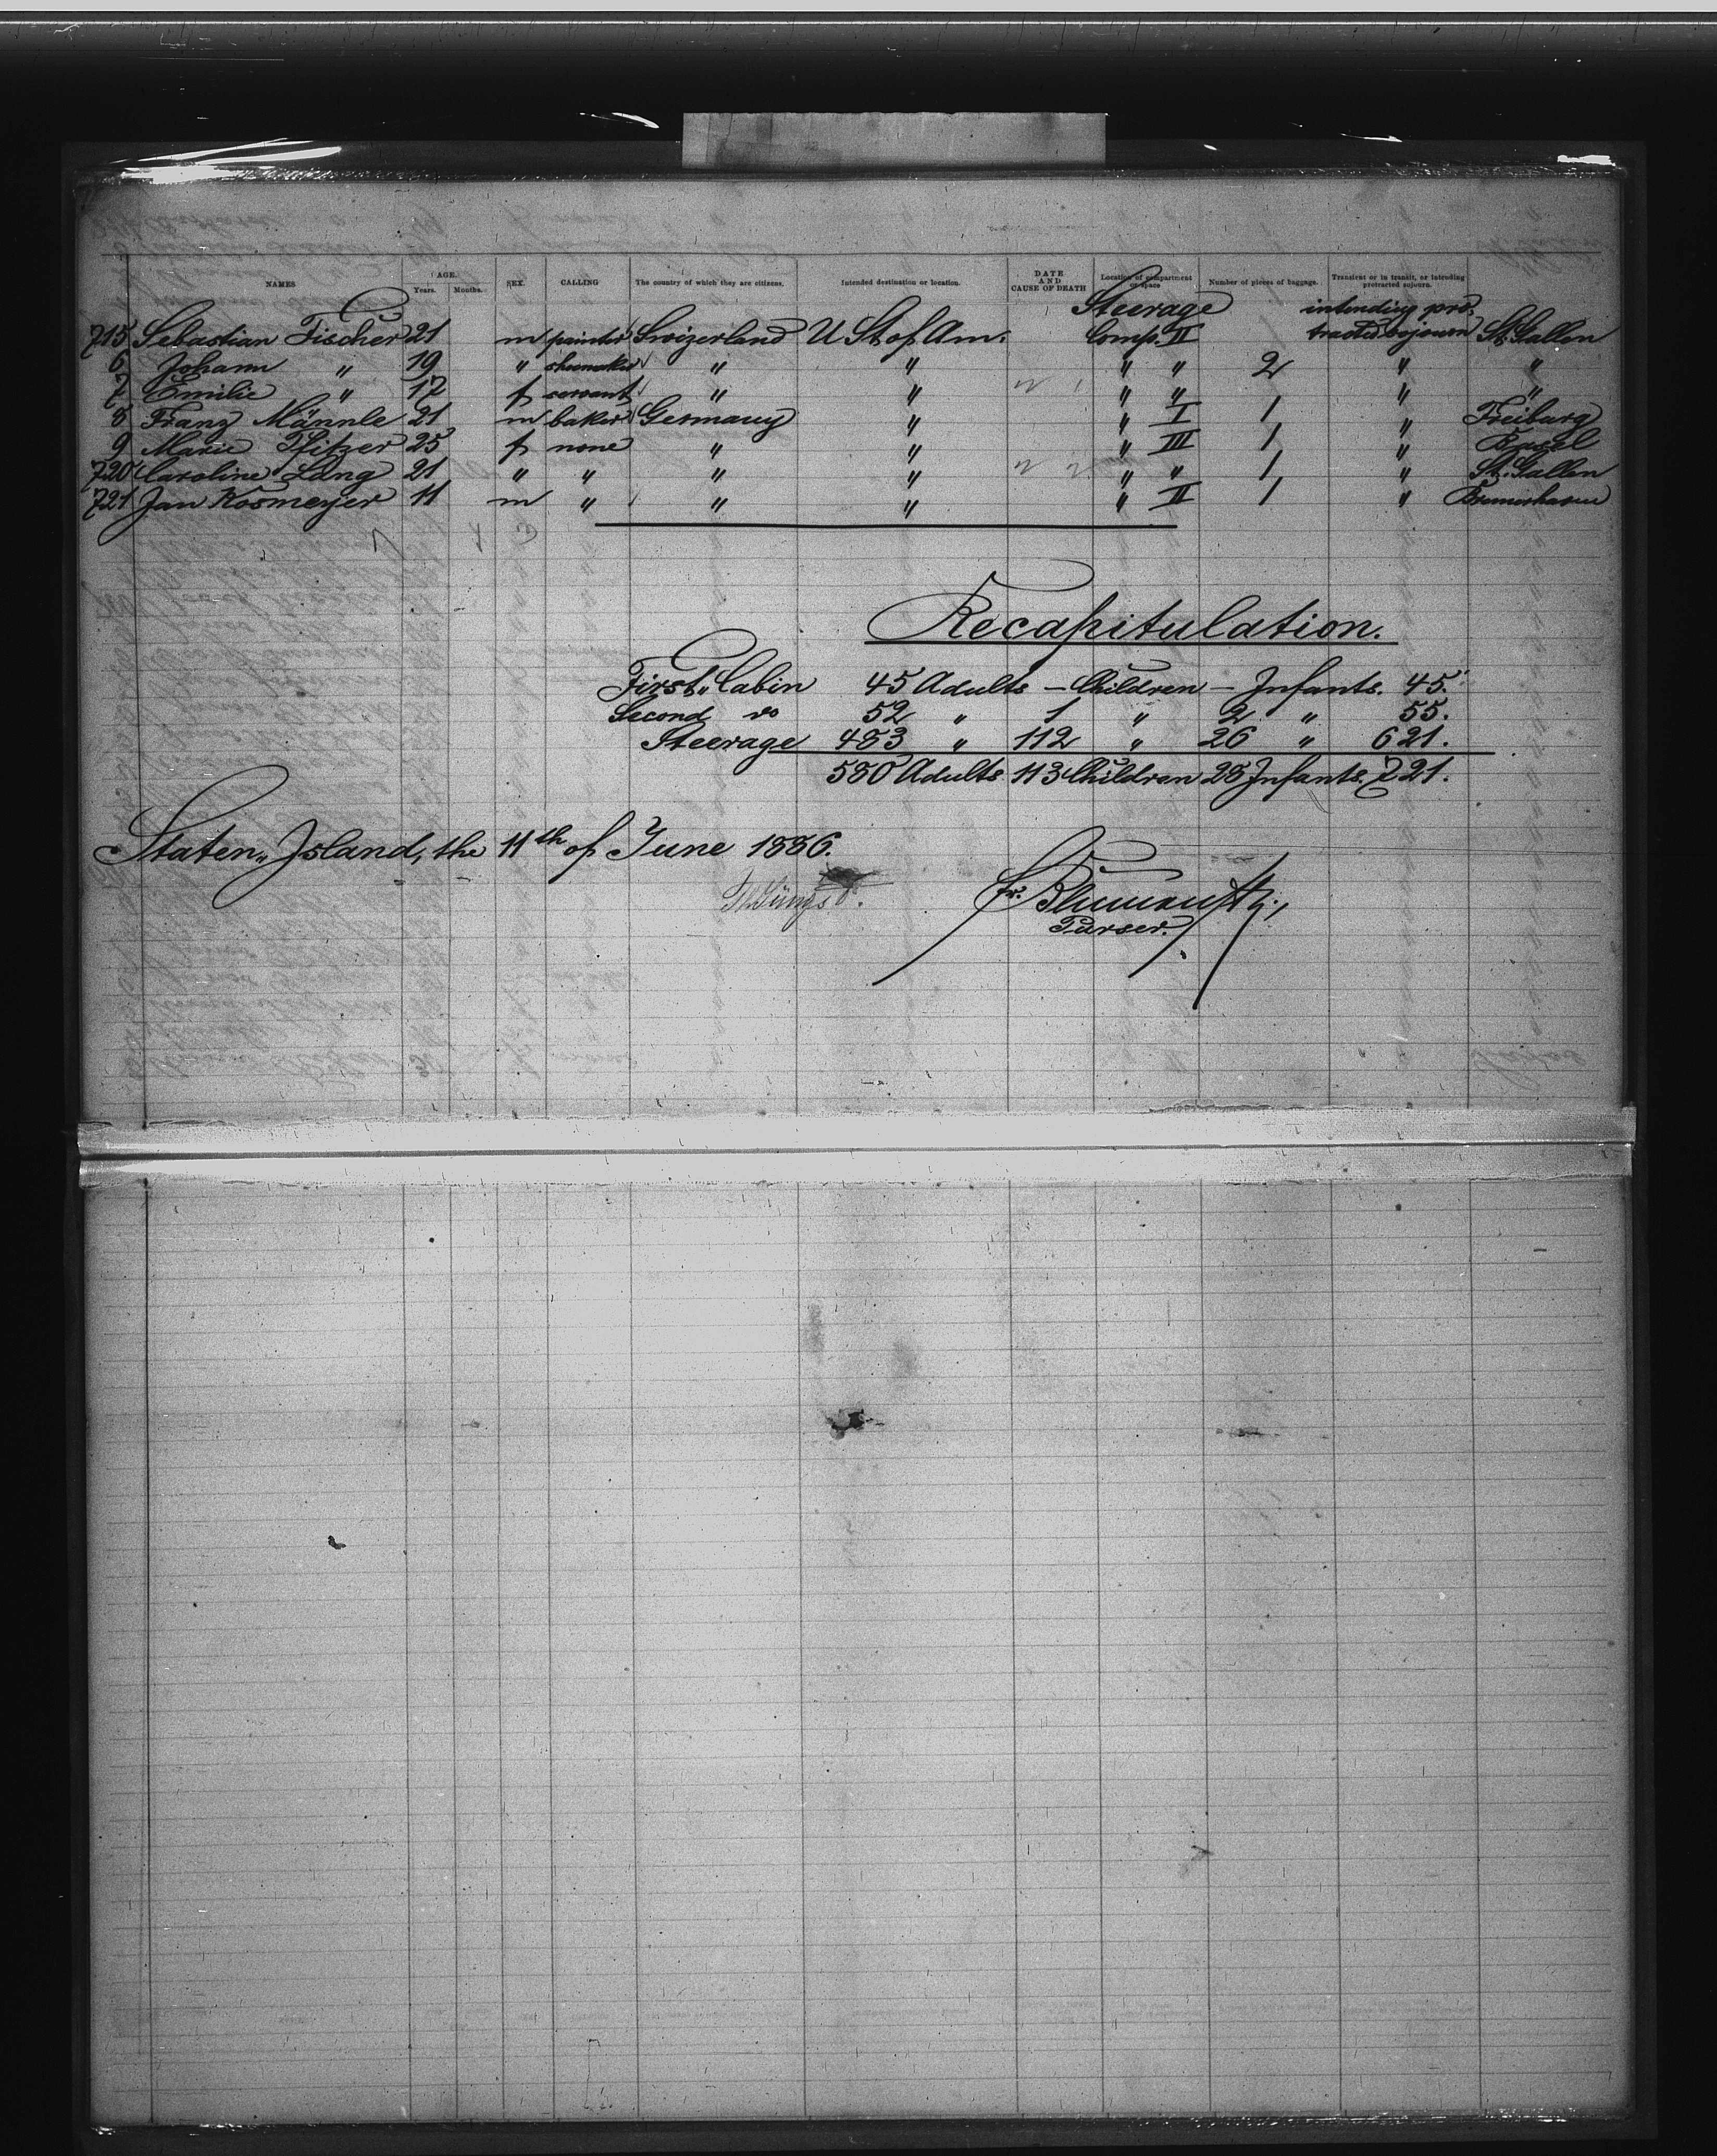 NAMES AGE. Years. Months. SEX. CALLING The country of which they are citizens. Intended destination or location. DATE AND CAUSE OF DEATH Location of compartment or space Number of pieces of baggage. Transient or in transit, or intending protracted sojourn.
Steerage intending pro-
715 Sebastian Fischer 21 m painter Swizerland U St of Am. Comp. II tracted sojourn St. Gallen
6 Johann " 19 " shoemaker " " " " 2 " "
7 Emilie " 17 f servant " " " " " "
8 Franz Männle 21 m baker Germany " " I 1 " Freiburg
9 Marie Pfitzer 25 f none " " " III 1 " Basel
720 Caroline Lang 21 " " " " " " 1 " St. Gallen
721 Jan Kosmeyer 11 m " " " " II 1 " Bremerhaven
Recapitulation.
First " Cabin 45 Adults — Children — Infants. 45.
Second do 52 " 1 " 2 " 55.
Steerage 483 " 112 " 26 " 621.
580 Adults 113 Children 28 Infants. 721.
Staten " Island, the 11th of June 1886.
Purser.